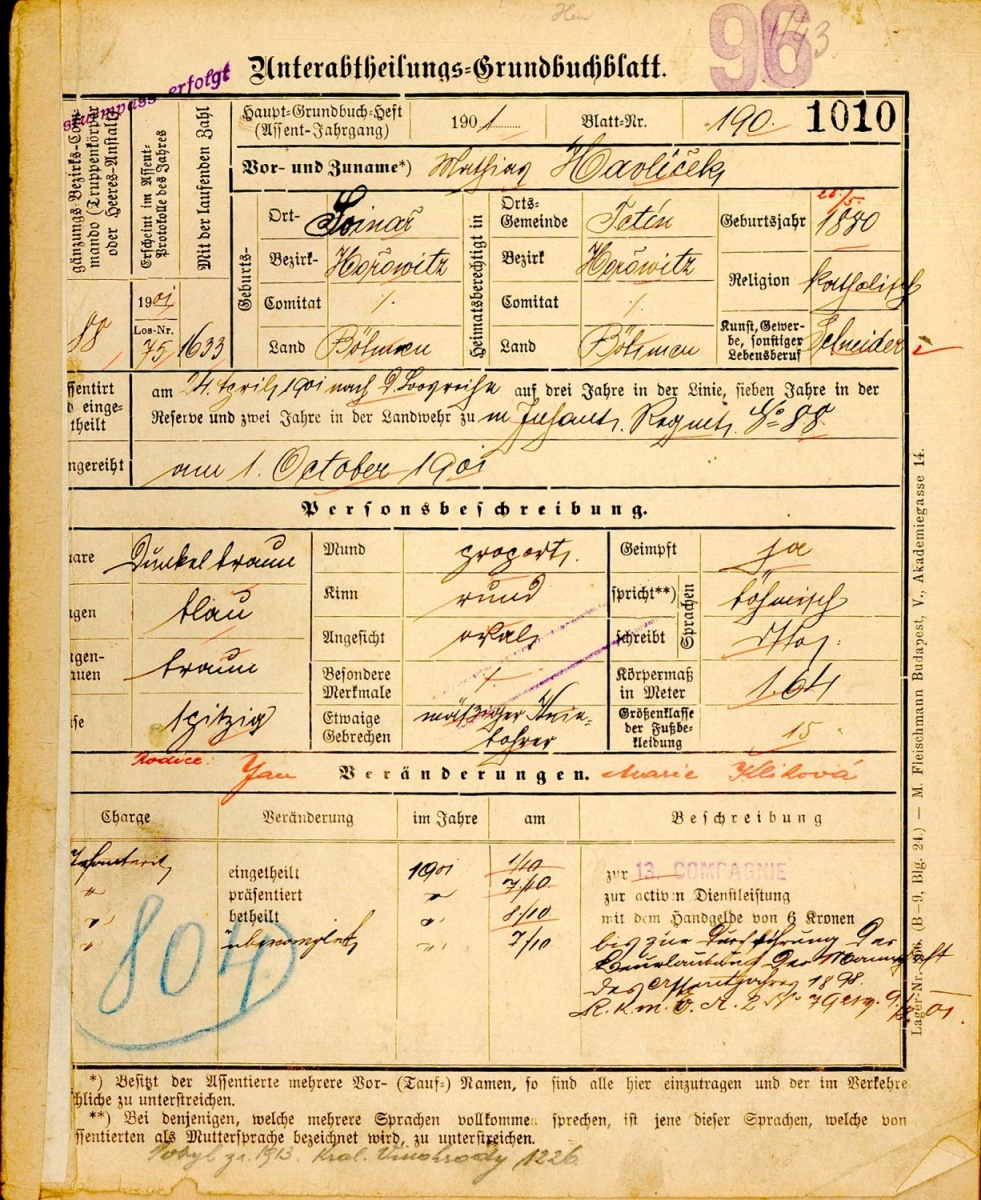 96
Unterabtheilungs=Grundbuchblatt.
erfolgt
Haupt=Grundbuch=Heft
(Assent=Jahrgang)
1901
Blatt=Nr.
190.
1010
gänzungs=Bezirks=Com-
mando (Truppenkörper
oder Heeres=Anstalt)
Erscheint im Assent-
Protokolle des Jahres
Mit der laufenden Zahl
Vor- und Zuname*) Mathias Havlíček
Geburts-
Ort- Svinař
Bezirk- Hořowitz
Comitat ./.
Land Böhmen
Heimatsberechtigt in
Orts-
Gemeinde Tetín
Bezirk Hořowitz
Comitat ./.
Land Böhmen
Geburtsjahr 25/5. 1880
Religion katholisch
Kunst, Gewer-
be, sonstiger
Lebensberuf Schneider
88
1901
Los=Nr.
75
1633
ssentirt
einge-
theilt
am 24. April 1901 nach d. Losreihe auf drei Jahre in der Linie, sieben Jahre in der
Reserve und zwei Jahre in der Landwehr zu m Infant. Regmt. No 88.
ngereiht am 1. October 1901
Personsbeschreibung.
are Dunkelbraun
gen blau
gen-
uen braun
se spitzig
Mund proport.
Kinn rund
Angesicht oval
Besondere
Merkmale ./.
Etwaige
Gebrechen mässiger Knie-
bohrer
Geimpft ja
spricht**) böhmisch
schreibt dtto.
Sprachen
Körpermaß
in Meter 1.64
Größenklasse
der Fußbe-
kleidung 15
Rodiče: Jan Veränderungen. Marie Kliková
Charge Veränderung im Jahre am Beschreibung
Infanterist eingetheilt 1901 1/10 zur 13. COMPAGNIE
" präsentiert " 7/10 zur activen Dienstleistung
" betheilt " 8/10 mit dem Handgelde von 6 Kronen
" übercomplet " 7/10 bis zur Durchführung der
Beurlaubung der Mannschaft
des Assentjahres 1898.
804
Lager=Nr. (B—9, Blg. 24.) — M. Fleischmann Budapest, V., Akademiegasse 14.
*) Besitzt der Assentierte mehrere Vor- (Tauf=) Namen, so sind alle hier einzutragen und der im Verkehre
chliche zu unterstreichen.
**) Bei denjenigen, welche mehrere Sprachen vollkommen sprechen, ist jene dieser Sprachen, welche von
ssentierten als Muttersprache bezeichnet wird, zu unterstreichen.
Pobyl zr. 1913. Král. Vinohrady 1226